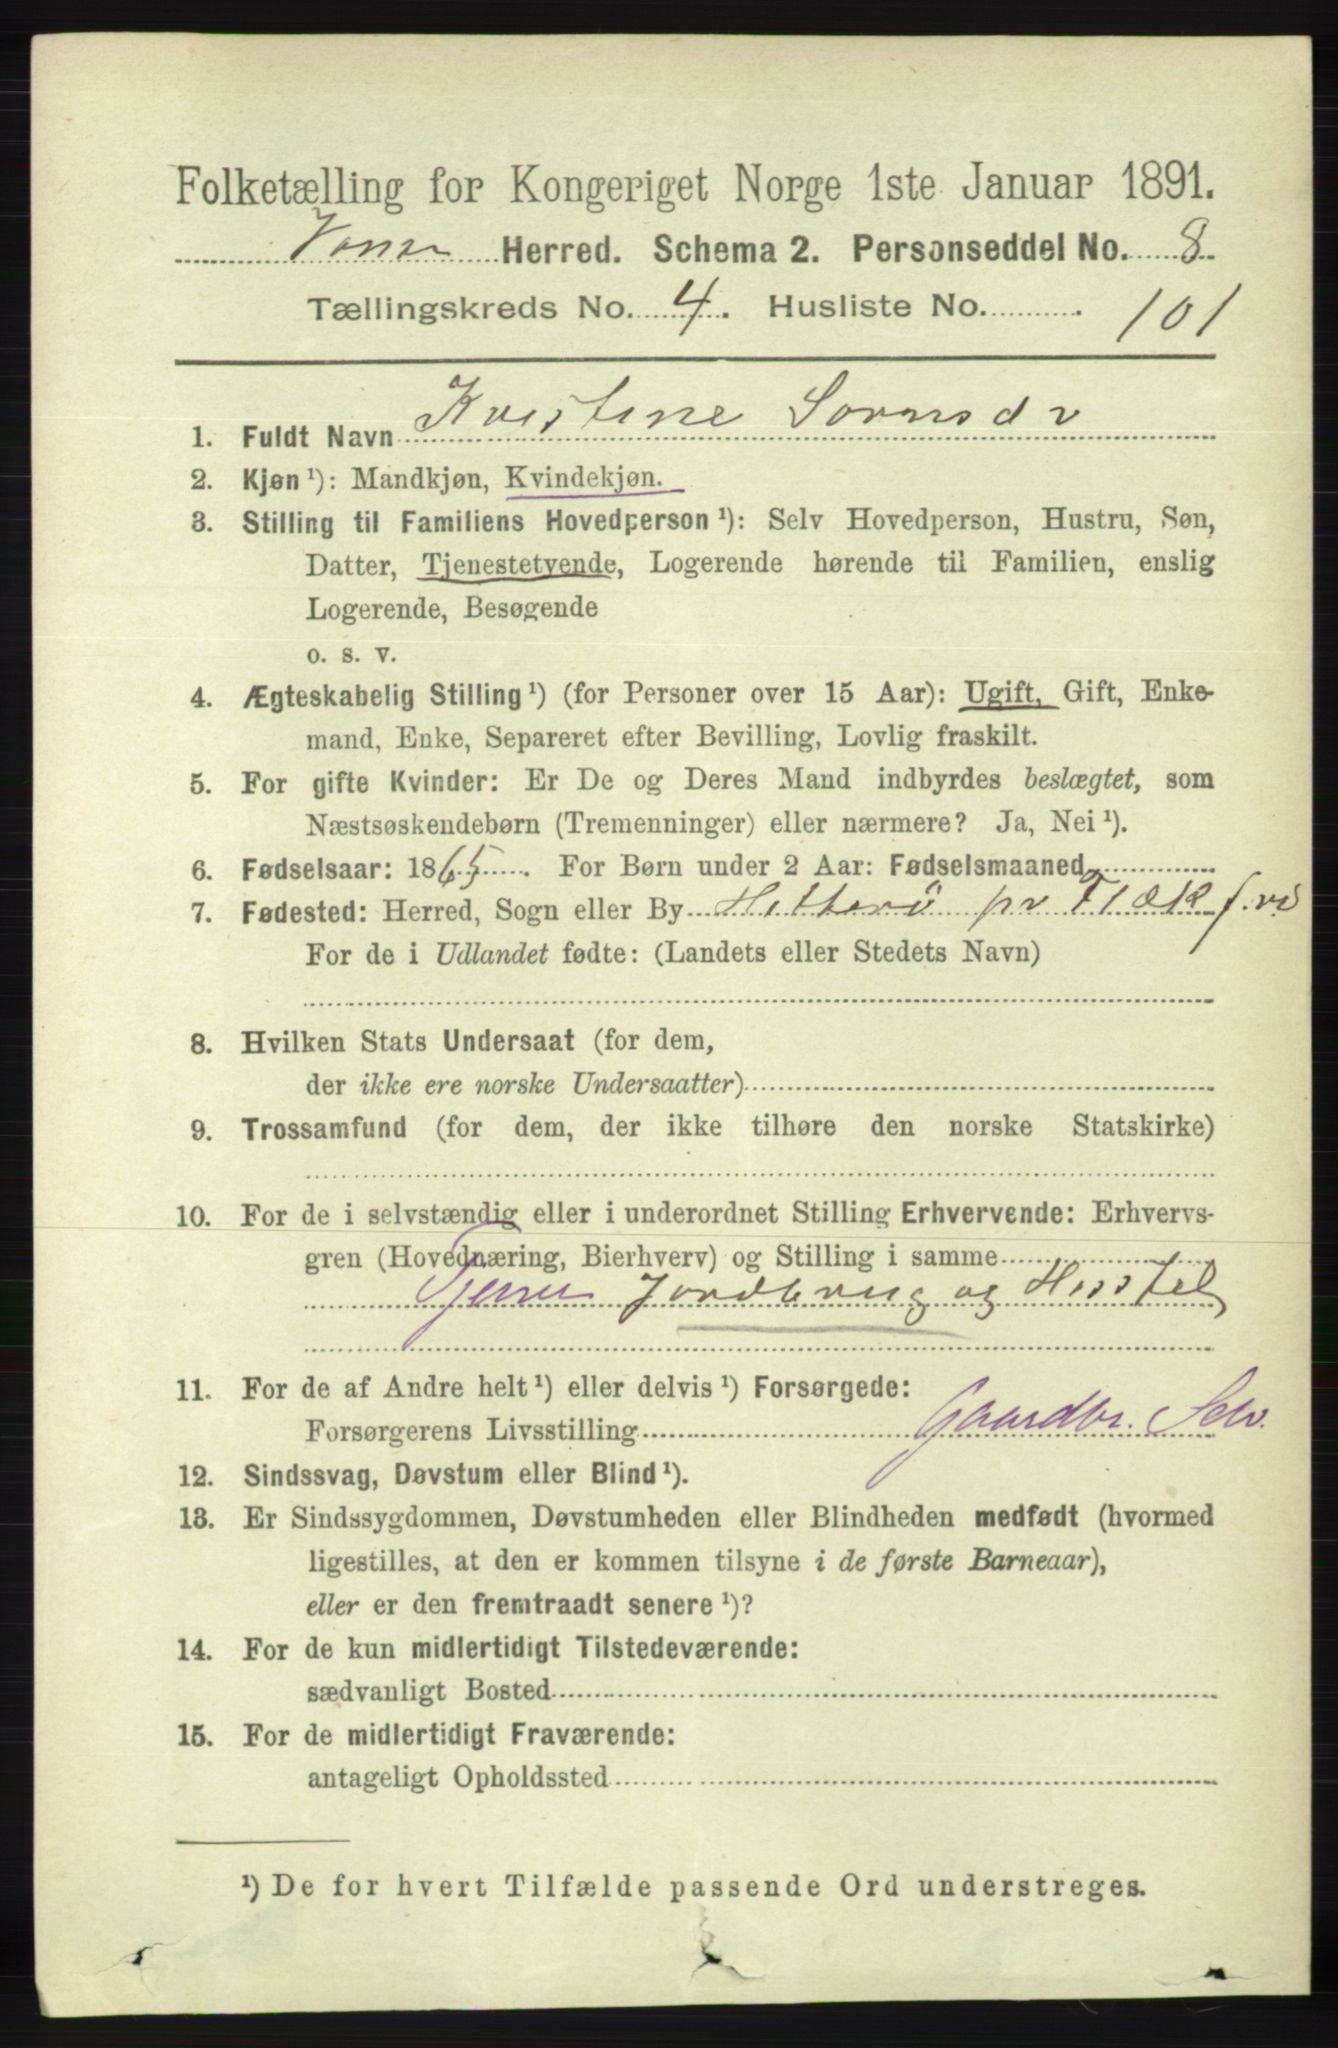 Folketælling for Kongeriget Norge 1ste Januar 1891.
Herred. Schema 2. Personseddel No. 8
Tællingskreds No. 4. Husliste No. 101
1. Fuldt Navn Kristine
2. Kjøn ¹): Mandkjøn, Kvindekjøn.
3. Stilling til Familiens Hovedperson ¹): Selv Hovedperson, Hustru, Søn,
Datter, Tjenestetyende, Logerende hørende til Familien, enslig
Logerende, Besøgende
o. s. v.
4. Ægteskabelig Stilling ¹) (for Personer over 15 Aar): Ugift, Gift, Enke-
mand, Enke, Separeret efter Bevilling, Lovlig fraskilt.
5. For gifte Kvinder: Er De og Deres Mand indbyrdes beslægtet, som
Næstsøskendebørn (Tremenninger) eller nærmere? Ja, Nei ¹).
6. Fødselsaar: 1865. For Børn under 2 Aar: Fødselsmaaned
7. Fødested: Herred, Sogn eller By Hitterø pr
For de i Udlandet fødte: (Landets eller Stedets Navn)
8. Hvilken Stats Undersaat (for dem,
der ikke ere norske Undersaatter)
9. Trossamfund (for dem, der ikke tilhøre den norske Statskirke)
10. For de i selvstændig eller i underordnet Stilling Erhvervende: Erhvervs-
gren (Hovednæring, Bierhverv) og Stilling i samme
Jordbrug og
11. For de af Andre helt ¹) eller delvis ¹) Forsørgede:
Forsørgerens Livsstilling Gaardbr. Selv.
12. Sindssvag, Døvstum eller Blind ¹).
13. Er Sindssygdommen, Døvstumheden eller Blindheden medfødt (hvormed
ligestilles, at den er kommen tilsyne i de første Barneaar),
eller er den fremtraadt senere ¹)?
14. For de kun midlertidigt Tilstedeværende:
sædvanligt Bosted
15. For de midlertidigt Fraværende:
antageligt Opholdssted
¹) De for hvert Tilfælde passende Ord understreges.